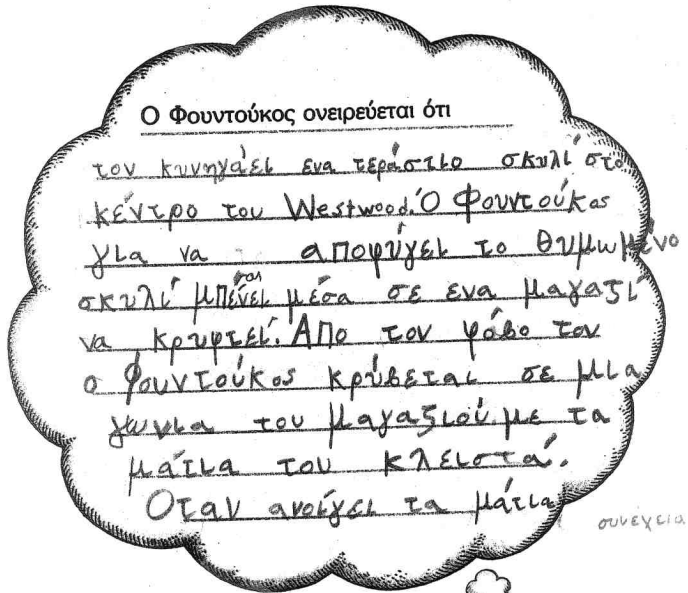 Ο Φουντούκος ονειρεύεται ότι
τον κυνηγάει ενα τεράστιο σκυλί στο
κέντρο του Westwood. Ο Φουντούκος
για να αποφύγει το θυμωμένο
σκυλί μπένει μέσα σε ενα μαγαζί
να κρυφτεί. Απο τον φόβο του
ο Φουντούκος κρύβεται σε μια
γωνια του μαγαζιού με τα
μάτια του κλειστά.
Οταν ανοίγει τα μάτια
συνέχεια